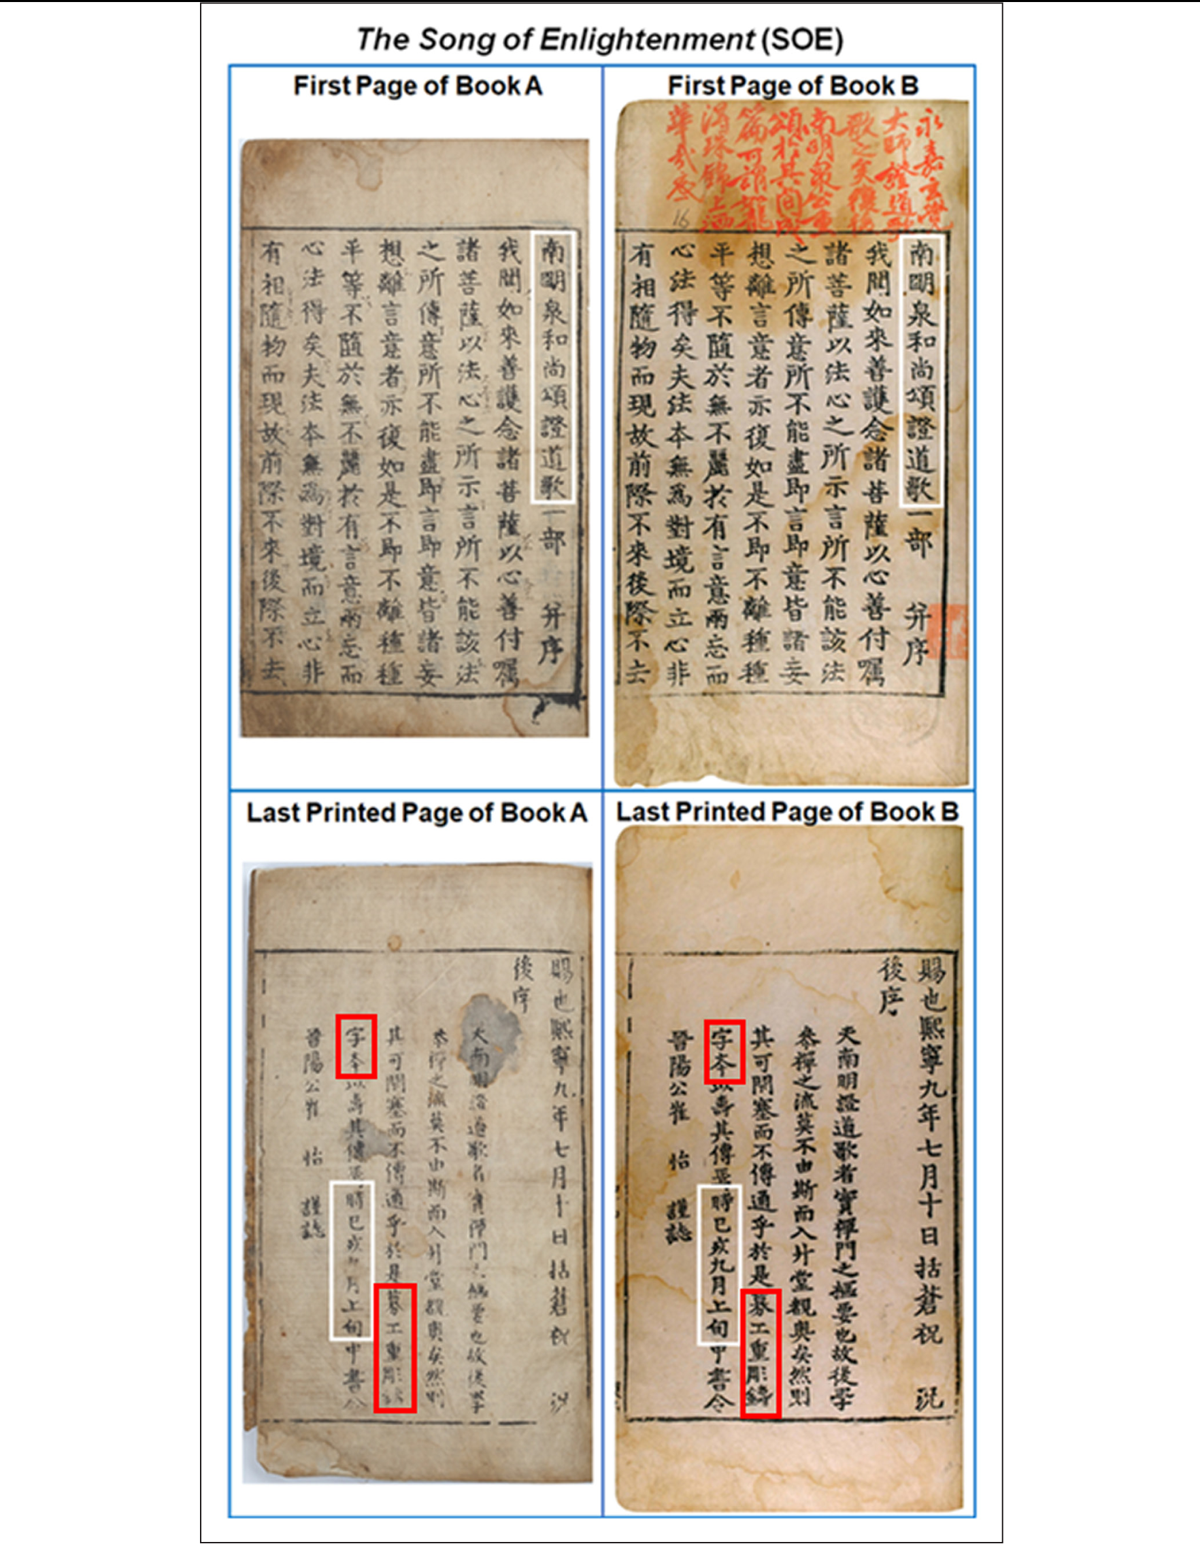 The Song of Enlightenment (SOE)
First Page of Book A
南明泉和尚頌證道歌一部 并序
我聞如來善護念諸菩薩以心善付囑
諸菩薩以法心之所示言所不能該法
之所傳意所不能盡即言即意皆諸妄
想離言意者亦復如是不即不離種種
平等不隨於無不麗於有言意兩忘而
心法得矣夫法本無爲對境而立心非
有相隨物而現故前際不來後際不去
First Page of Book B
永嘉玄覺
大師證道歌
歌之矣復得
南明泉公重
頌於其間成
篇可謂
珠錦上
華哉
16
南明泉和尚頌證道歌一部 并序
我聞如來善護念諸菩薩以心善付囑
諸菩薩以法心之所示言所不能該法
之所傳意所不能盡即言即意皆諸妄
想離言意者亦復如是不即不離種種
平等不隨於無不麗於有言意兩忘而
心法得矣夫法本無爲對境而立心非
有相隨物而現故前際不來後際不去
Last Printed Page of Book A
賜也熙寧九年七月十日括蒼祝 況
後序
夫南明證道歌者實禪門之樞要也故後學
參禪之流莫不由斯而入升堂覩奧矣然則
其可閉塞而不傳通乎於是募工重彫鑄
字本以壽其傳焉時己亥九月上旬中書令
晉陽公崔 怡 謹誌
Last Printed Page of Book B
賜也熙寧九年七月十日括蒼祝 況
後序
夫南明證道歌者實禪門之樞要也故後學
參禪之流莫不由斯而入升堂覩奧矣然則
其可閉塞而不傳通乎於是募工重彫鑄
字本以壽其傳焉時己亥九月上旬中書令
晉陽公崔 怡 謹誌